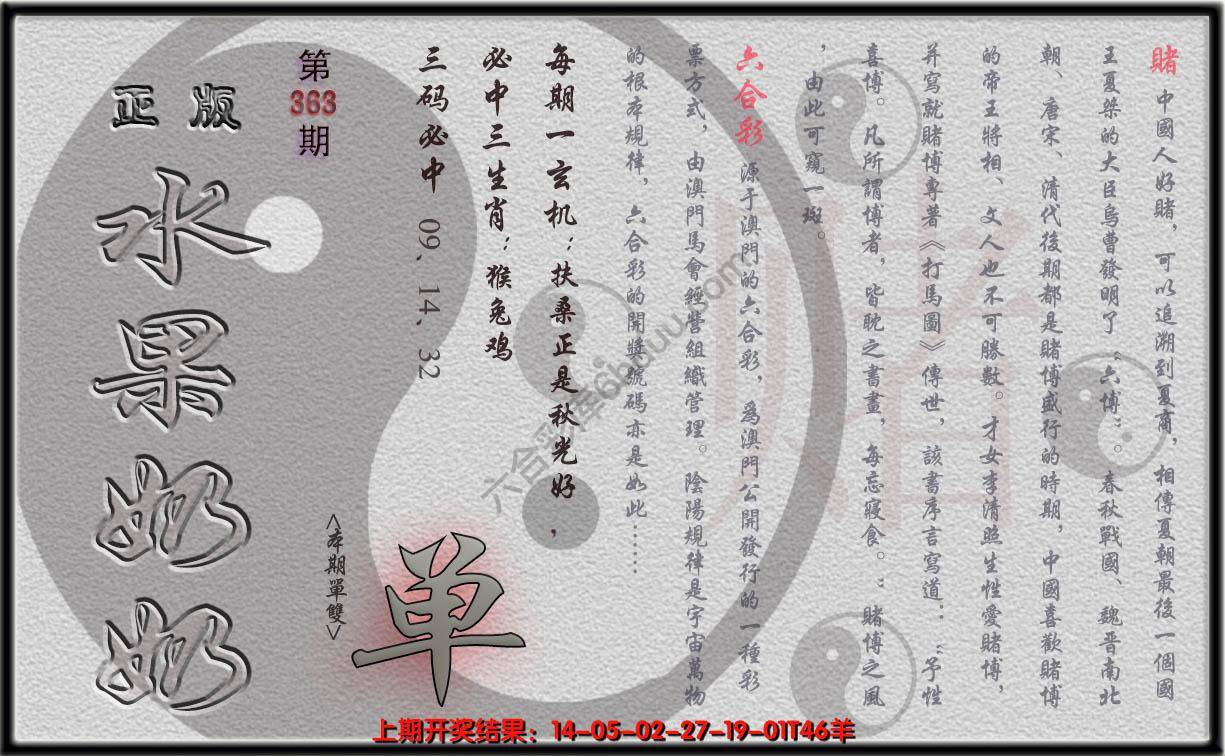 賭 中國人好賭，可以追溯到夏商，相傳夏朝最後一個國
王夏桀的大臣烏曹發明了“六博”。春秋戰國、魏晋南北
朝、唐宋、清代後期都是賭博盛行的時期，中國喜歡賭博
的帝王將相、文人也不可勝數。才女李清照生性愛賭博，
并寫就賭博專著《打馬圖》傳世，該書序言寫道：“予性
喜博。凡所謂博者，皆耽之書畫，每忘寢食。”賭博之風
，由此可窺一斑。
六合彩 源于澳門的六合彩，爲澳門公開發行的一種彩
票方式，由澳門馬會經營組織管理。陰陽規律是宇宙萬物
的根本規律，六合彩的開獎號碼亦是如此……
每期一玄机：扶桑正是秋光好，
必中三生肖：猴兔鸡
三码必中 09、14、32
第
363
期
正版
水果奶奶
<本期單雙>
单
賭
六合彩库6huuu.com
上期开奖结果：14-05-02-27-19-01T46羊